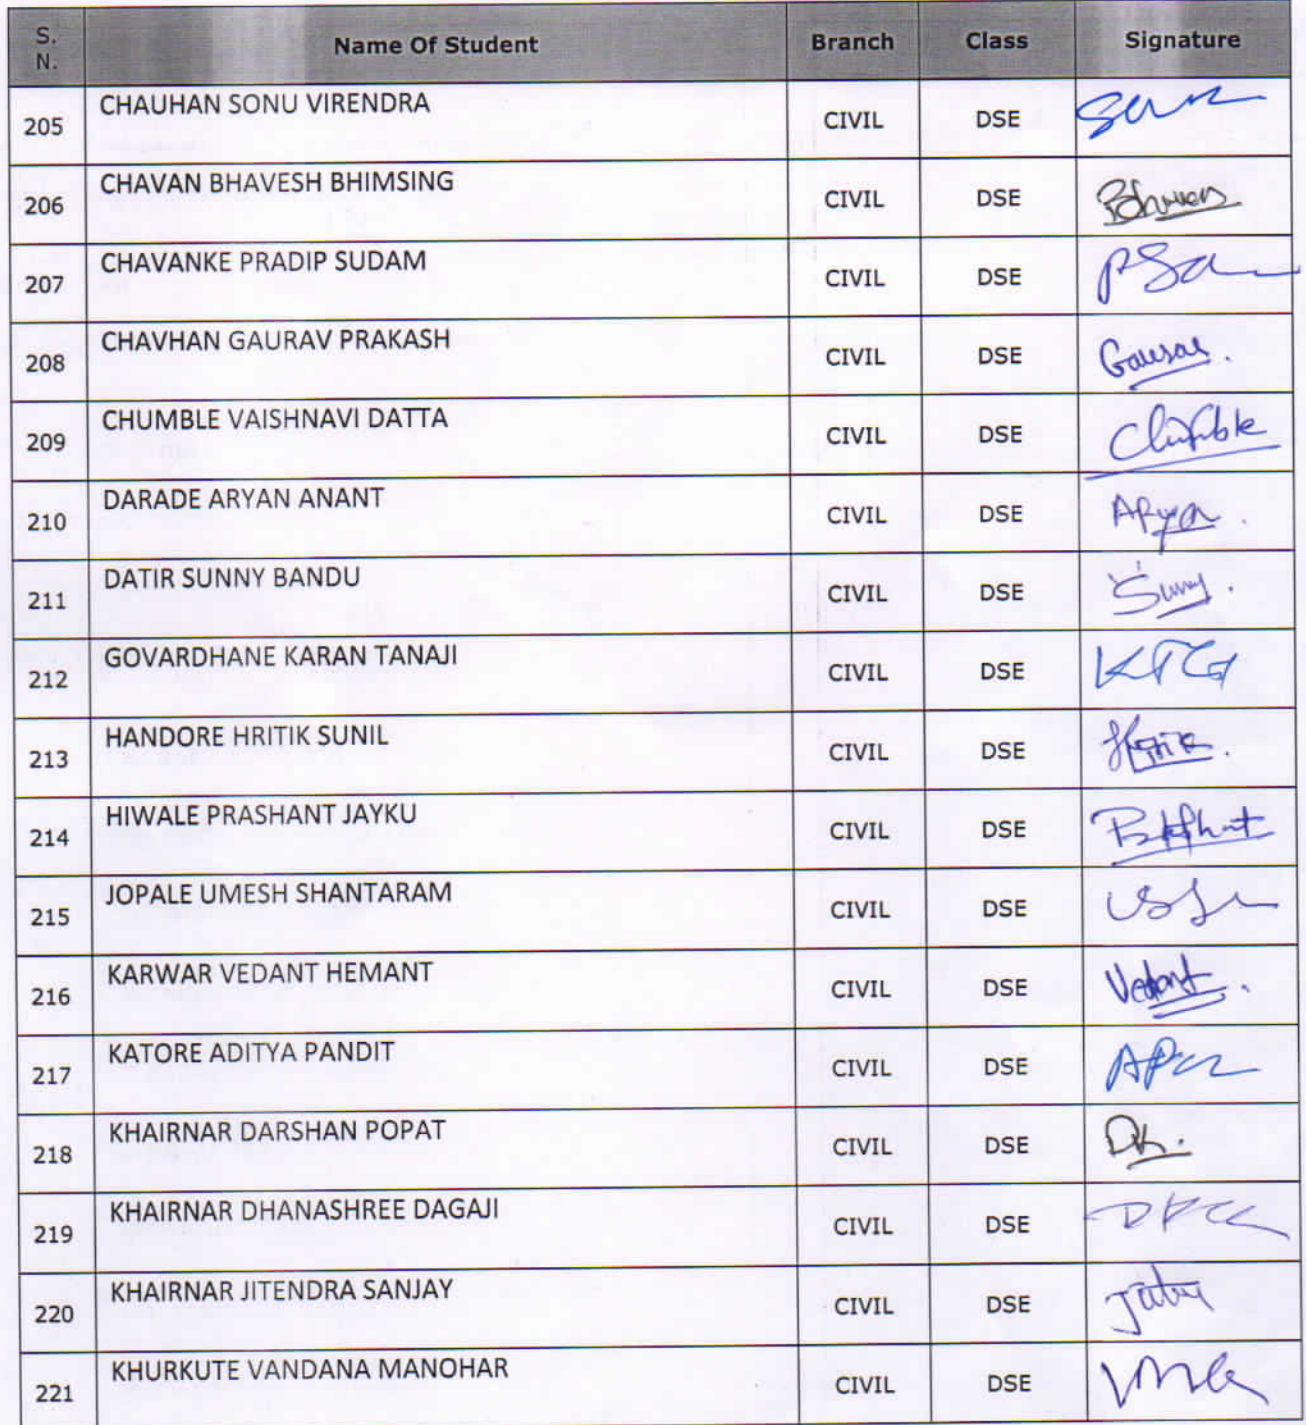 S. N. Name Of Student Branch Class Signature
205 CHAUHAN SONU VIRENDRA CIVIL DSE
206 CHAVAN BHAVESH BHIMSING CIVIL DSE
207 CHAVANKE PRADIP SUDAM CIVIL DSE
208 CHAVHAN GAURAV PRAKASH CIVIL DSE Gaurav.
209 CHUMBLE VAISHNAVI DATTA CIVIL DSE Chumble
210 DARADE ARYAN ANANT CIVIL DSE
211 DATIR SUNNY BANDU CIVIL DSE Sunny.
212 GOVARDHANE KARAN TANAJI CIVIL DSE KTG
213 HANDORE HRITIK SUNIL CIVIL DSE Hritik.
214 HIWALE PRASHANT JAYKU CIVIL DSE
215 JOPALE UMESH SHANTARAM CIVIL DSE
216 KARWAR VEDANT HEMANT CIVIL DSE Vedant.
217 KATORE ADITYA PANDIT CIVIL DSE
218 KHAIRNAR DARSHAN POPAT CIVIL DSE DK.
219 KHAIRNAR DHANASHREE DAGAJI CIVIL DSE
220 KHAIRNAR JITENDRA SANJAY CIVIL DSE
221 KHURKUTE VANDANA MANOHAR CIVIL DSE